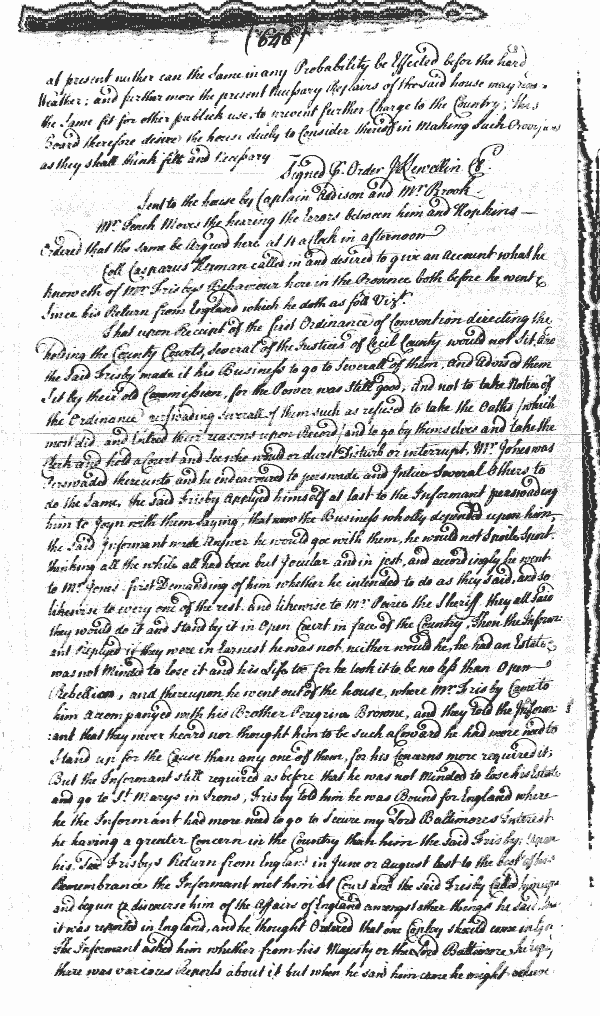 (646)
at present neither can the Same in any Probability be Effected before the hard
Weather; and further more the present necessary Repairs of the said house may render
the Same fitt for other publick use, to prevent further Charge to the Country; This
Board therefore desire the house duely to Consider thereof in Making Such Provision
as they shall think fitt and necessary
Signed P. Order J Llewellin Cl.
Sent to the house by Captain Addison and Mr. Brook.
Mr. Tench Moves the hearing the Errors between him and Hopkins —
Ordered that the Same be Argued here at 4 a Clock in afternoon
Coll Casparus Herman called in and desired to give an Account what he
knoweth of Mr. Frisbys Behaviour here in the Province both before he went &
Since his Return from England which he doth as foll Vizt.
That upon Receipt of the first Ordinance of Convention directing the
holding the County Courts, Several of the Justices of Cecil County would not Sit, are
the Said Frisby made it his Business to go to Severall of them, and Advised them
Sit by their old Commission, for the Power was Still good, And not to take Notice of
the Ordinance perswading Severall of them such as refused to take the Oaths (which
most did, and Entred their reasons upon Record) and to go by themselves and take the
Clerk and hold a Court and See who would or durst Disturb or interrupt, Mr. Jones was
Perswaded thereunto and he endeavoured to perswade and Intice Several Others to
do the Same, the said Frisby Applyed himself at last to the Informant perswading
him to Joyn with them Saying, that now the Business wholly depended upon him,
the Said Informant made Answer he would goe with them, he would not Spoile Sport,
thinking all the while all had been but Jocular and in jest, and accordingly he went
to Mr. Jones first Demanding of him whether he intended to do as they Said, and so
likewise to every one of the rest, and likewise to Mr. Pearce the Sheriff, they all Said
they would do it and Stand by it in Open Court in face of the Country, Then the Inform
ant Replyed if they were in Earnest he was not, neither would he, he had an Estate
was not Minded to lose it and his Life too for he took it to be no less than Open
Rebellion, and thereupon he went out of the house, where Mr. Frisby Came to
him Accompanyed with his Brother Peregrine Browne, and they told the Inform
ant that they never heard nor thought him to be such a Coward he had more need to
Stand up for the Cause than any one of them, for his Concerns more required it;
But the Informant still required as before that he was not minded to lose his Estate
and go to St. Marys in Irons, Frisby told him he was Bound for England where
he the Informant had more need to go to Secure my Lord Baltimores Interest
he having a greater Concern in the Country than him the said Frisby; Upon
his Frisbys Return from England in June or August last to the best of his
Remembrance the Informant met him at Court and the said Frisby called
and begun to discourse him of the Affairs of England amongst other things he Said
it was reported in England, and he thought Ordered that one Copley should come
The Informant asked him whether from his Majesty or the Lord Baltimore
there was various Reports about it but when he saw him came he might